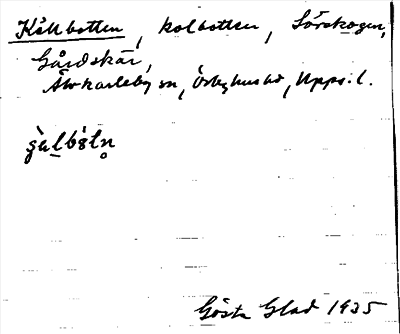 Kållbotten, kolbotten, Sörskogen,
Gårdskär,
Älvkarleby sn, Örbyhus hd, Upps. l.
Gösta Glad 1935